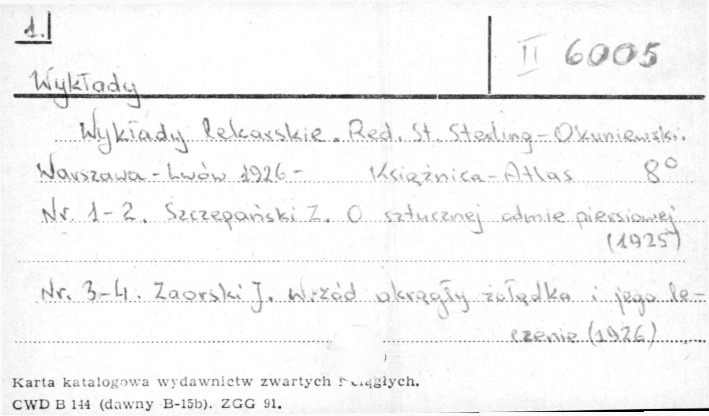 1.
II 6005
Wykłady
Wykłady lekarskie. Red. St. Sterling-Okuniewski.
Warszawa-Lwów 1926- Książnica-Atlas 8°
Nr. 1-2. Szczepański Z. O sztucznej odmie piersiowej
(1925)
Nr. 3-4. Zaorski J. Wrzód okrągły żołądka i jego le-
czenie (1926)
Karta katalogowa wydawnictw zwartych i ciągłych.
CWD B 144 (dawny B-15b). ZGG 91.